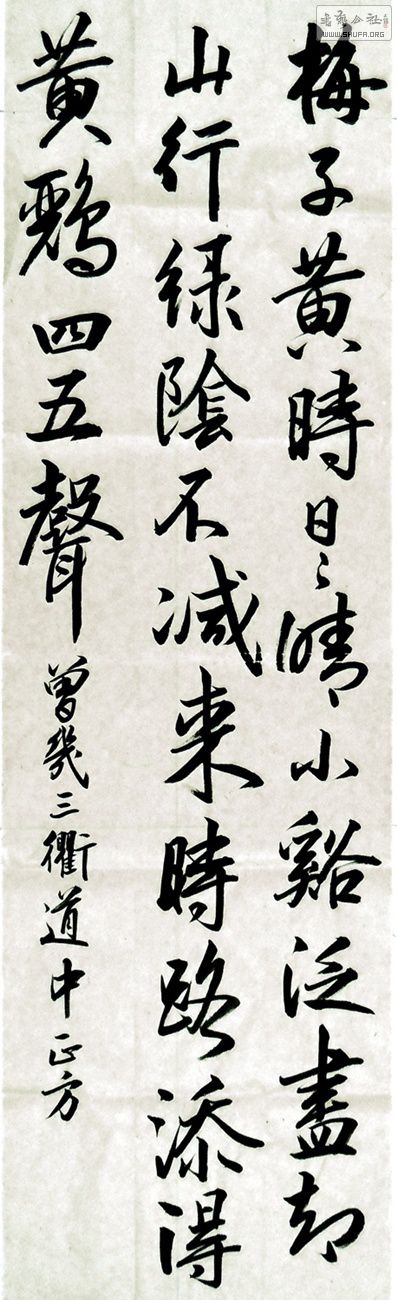 梅子黄時日〻晴小谿泛盡却
山行緑陰不減来時路添得
黄鸝四五聲
曾幾三衢道中正方
WWW.SHUFA.ORG